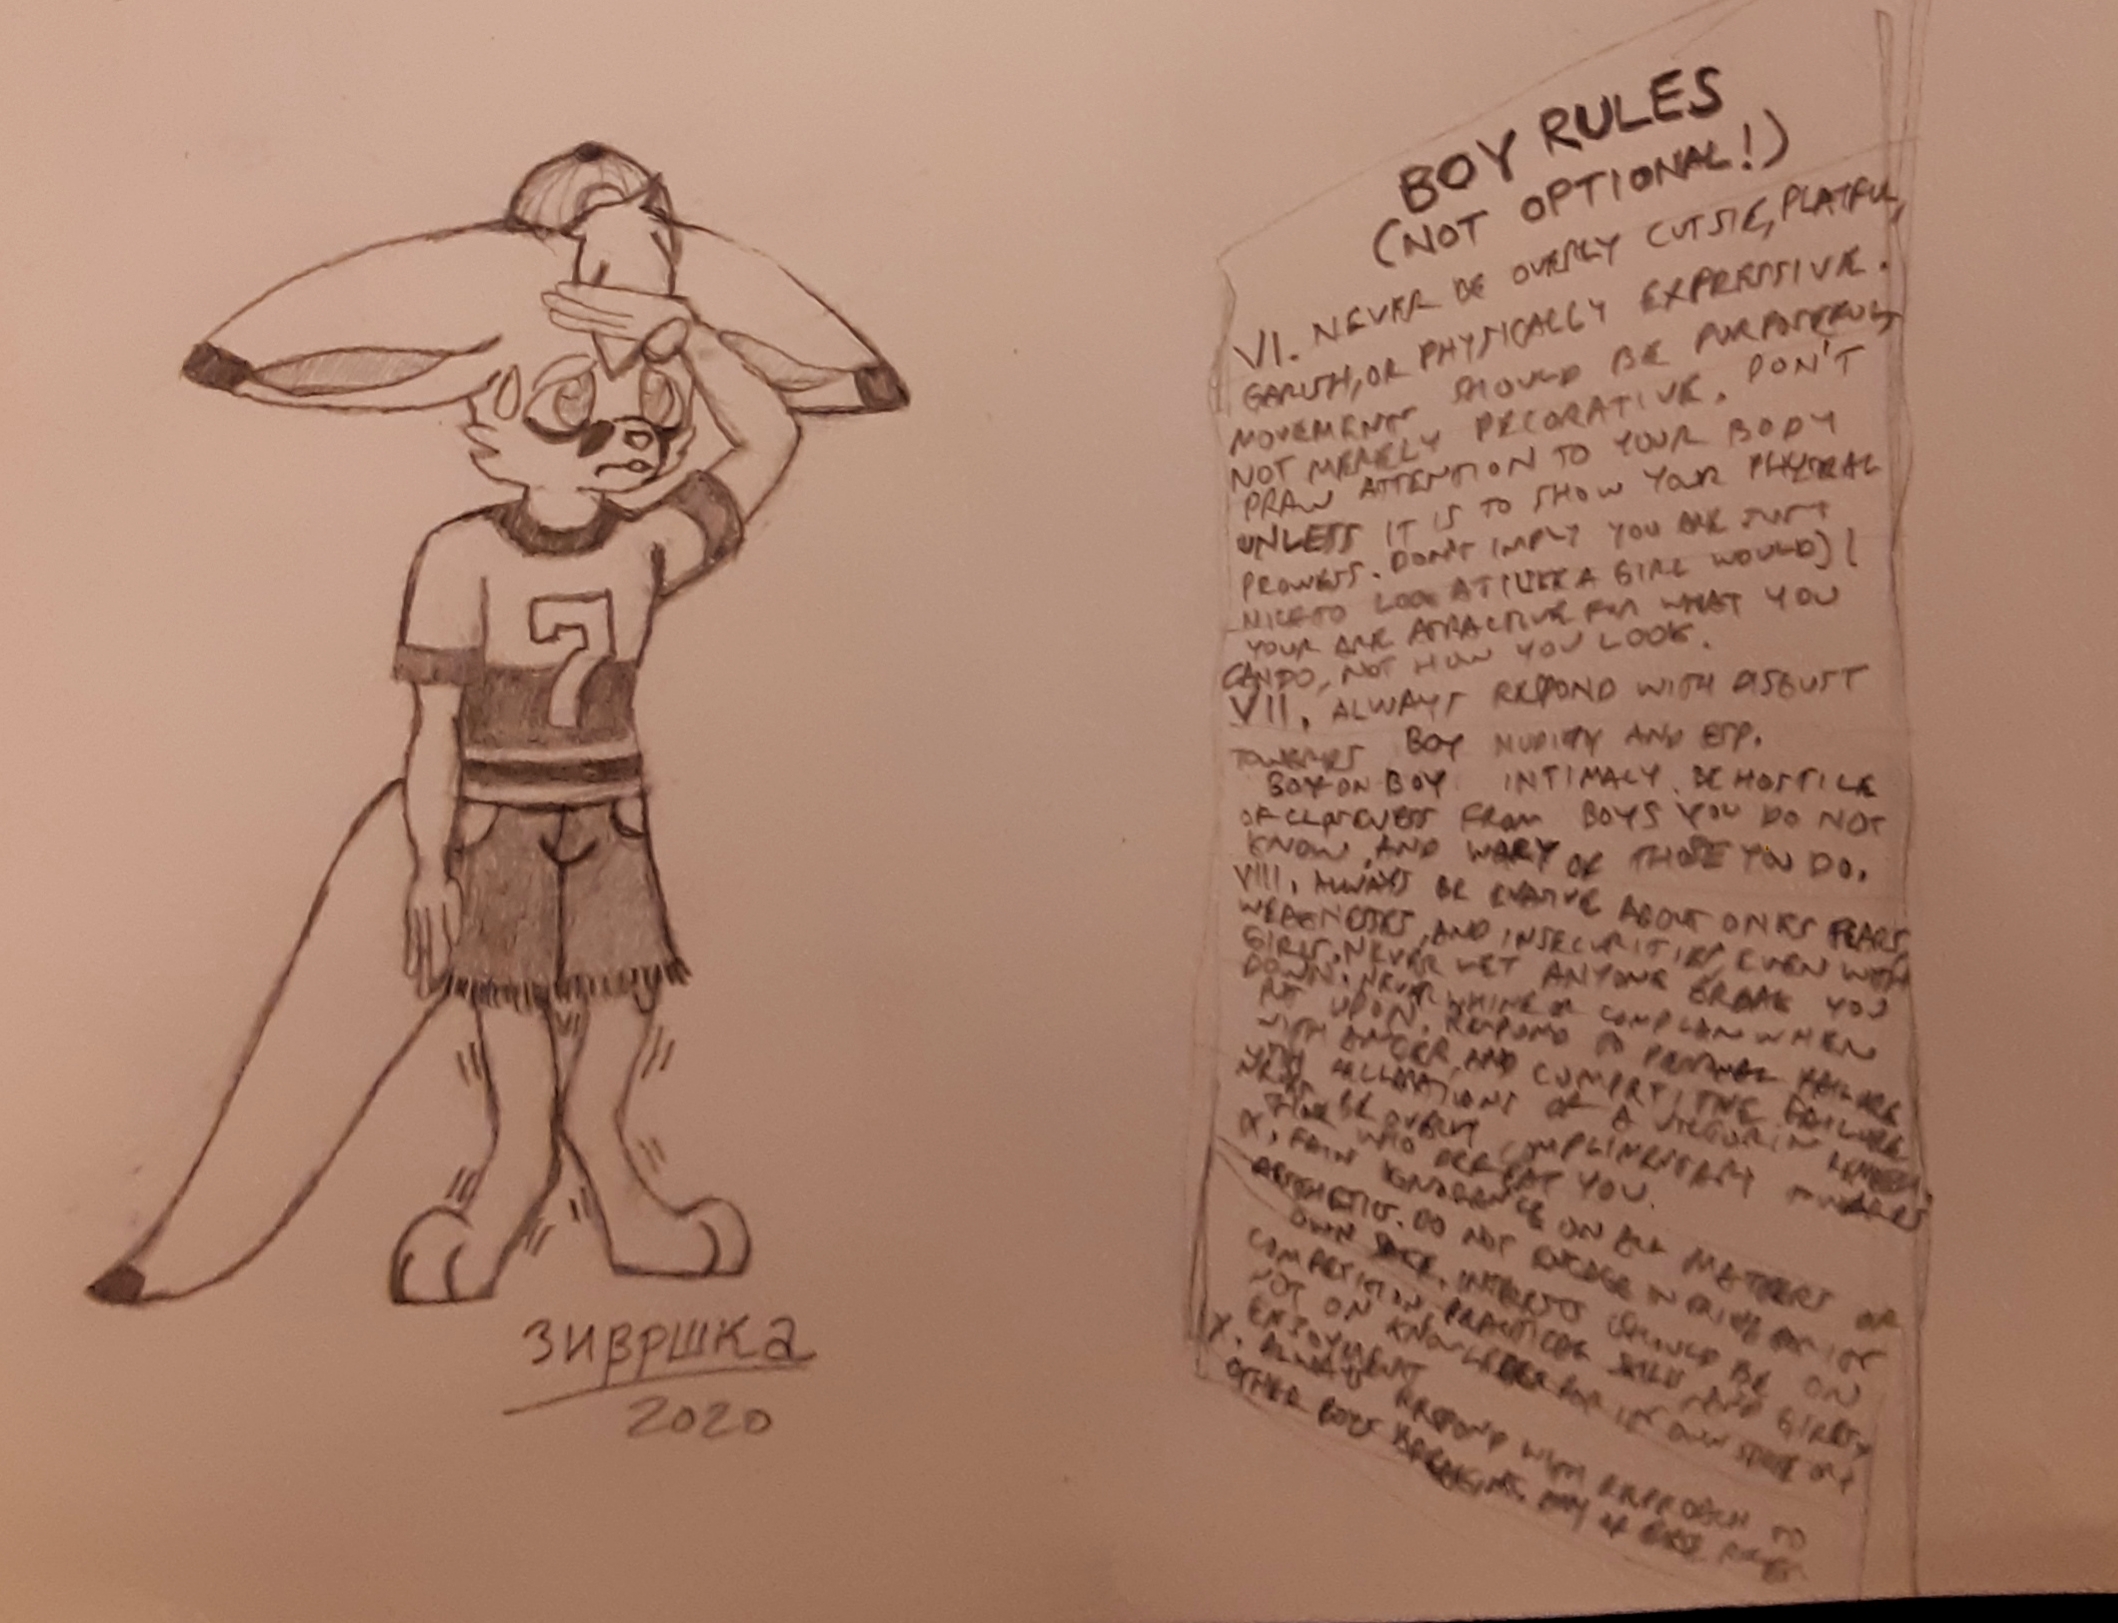 7
ЗИВРШКА
2020
BOY RULES
(NOT OPTIONAL!)
VI. NEVER BE OVERLY CUTSIE, PLAYFUL,
GARISH, OR PHYSICALLY EXPRESSIVE.
MOVEMENT SHOULD BE PURPOSEFUL,
NOT MERELY DECORATIVE. DON'T
DRAW ATTENTION TO YOUR BODY
UNLESS IT IS TO SHOW YOUR PHYSICAL
PROWESS. DON'T IMPLY YOU ARE JUST
NICE TO LOOK AT (LIKE A GIRL WOULD)!
YOUR ARE ATTRACTIVE FOR WHAT YOU
CAN DO, NOT HOW YOU LOOK.
VII. ALWAYS RESPOND WITH DISGUST
TOWARDS BOY NUDITY AND ESP.
BOY ON BOY INTIMACY. BE HOSTILE
OF CLOSENESS FROM BOYS YOU DO NOT
KNOW, AND WARY OF THOSE YOU DO.
VIII. ALWAYS BE EVASIVE ABOUT ONES FEARS,
WEAKNESSES, AND INSECURITIES EVEN WITH
GIRLS. NEVER LET ANYONE BREAK YOU
DOWN. NEVER WHINE OR COMPLAIN WHEN
UPON. RESPOND TO PERSONAL FAILURE
WITH ANGER, AND COMPETITIVE FAILURE
WITH OF A
BE OVERLY COMPLIMENTARY TOWARDS
WHO DEFEAT YOU.
IX. FAIN IGNORANCE ON ALL MATTERS OF
AESTHETICS. DO NOT ENGAGE IN FOR ITS
OWN SAKE. INTERESTS SHOULD BE ON
COMPETITION, PRACTICAL SKILLS AND GIRLS,
NOT ON KNOWLEDGE FOR ITS OWN SAKE OR
ENJOYMENT
X. ALWAYS RESPOND WITH REPROACH TO
OTHER BOYS BREAKING ANY OF THESE RULES